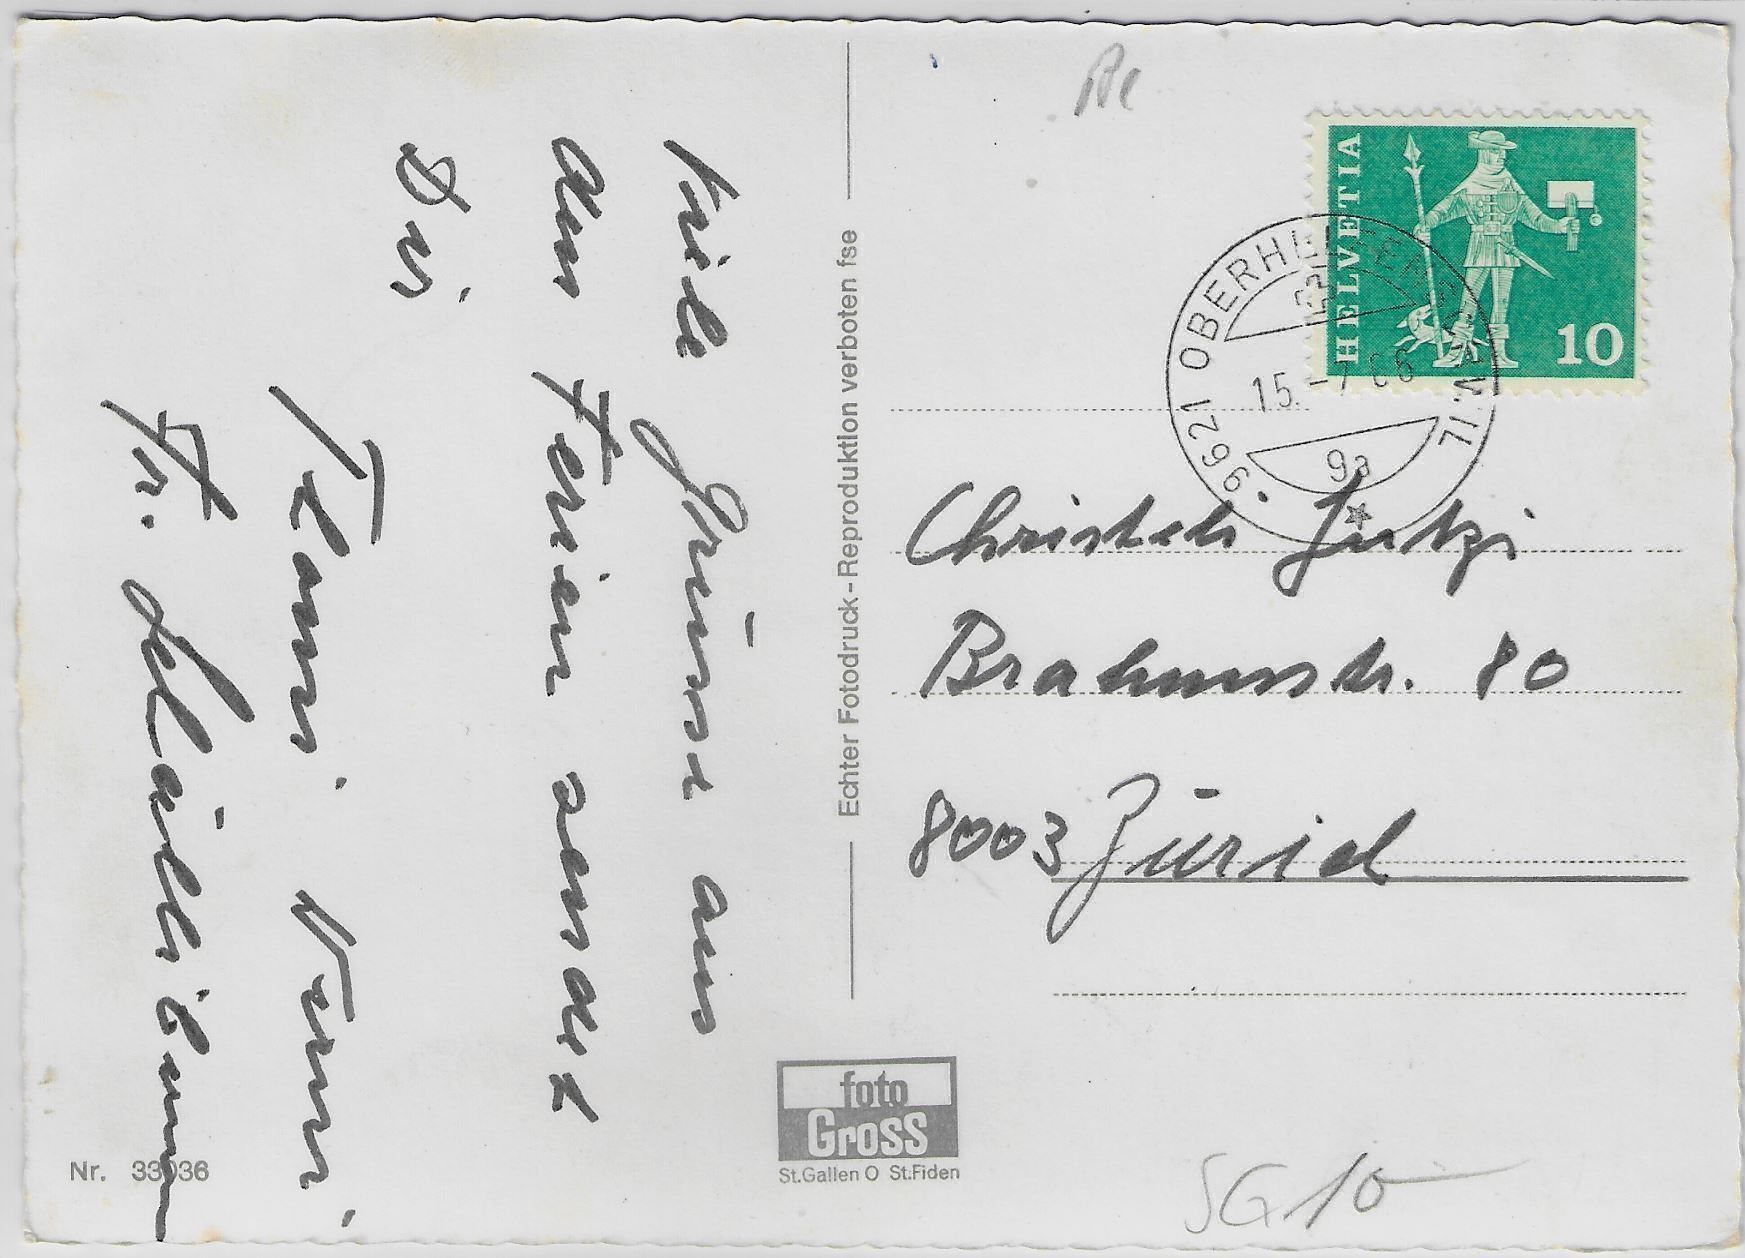 Viele Grüsse aus
den Ferien sendet
Dir
Fr.
Echter Fotodruck-Reproduktion verboten fse
HELVETIA
10
9621 OBERHELFENSCHWIL
15.-7.66
9a
Christeli Jutzi
Brahmsstr. 80
8003 Zürich
foto
Gross
St.Gallen O St.Fiden
Nr. 33036
SG 10